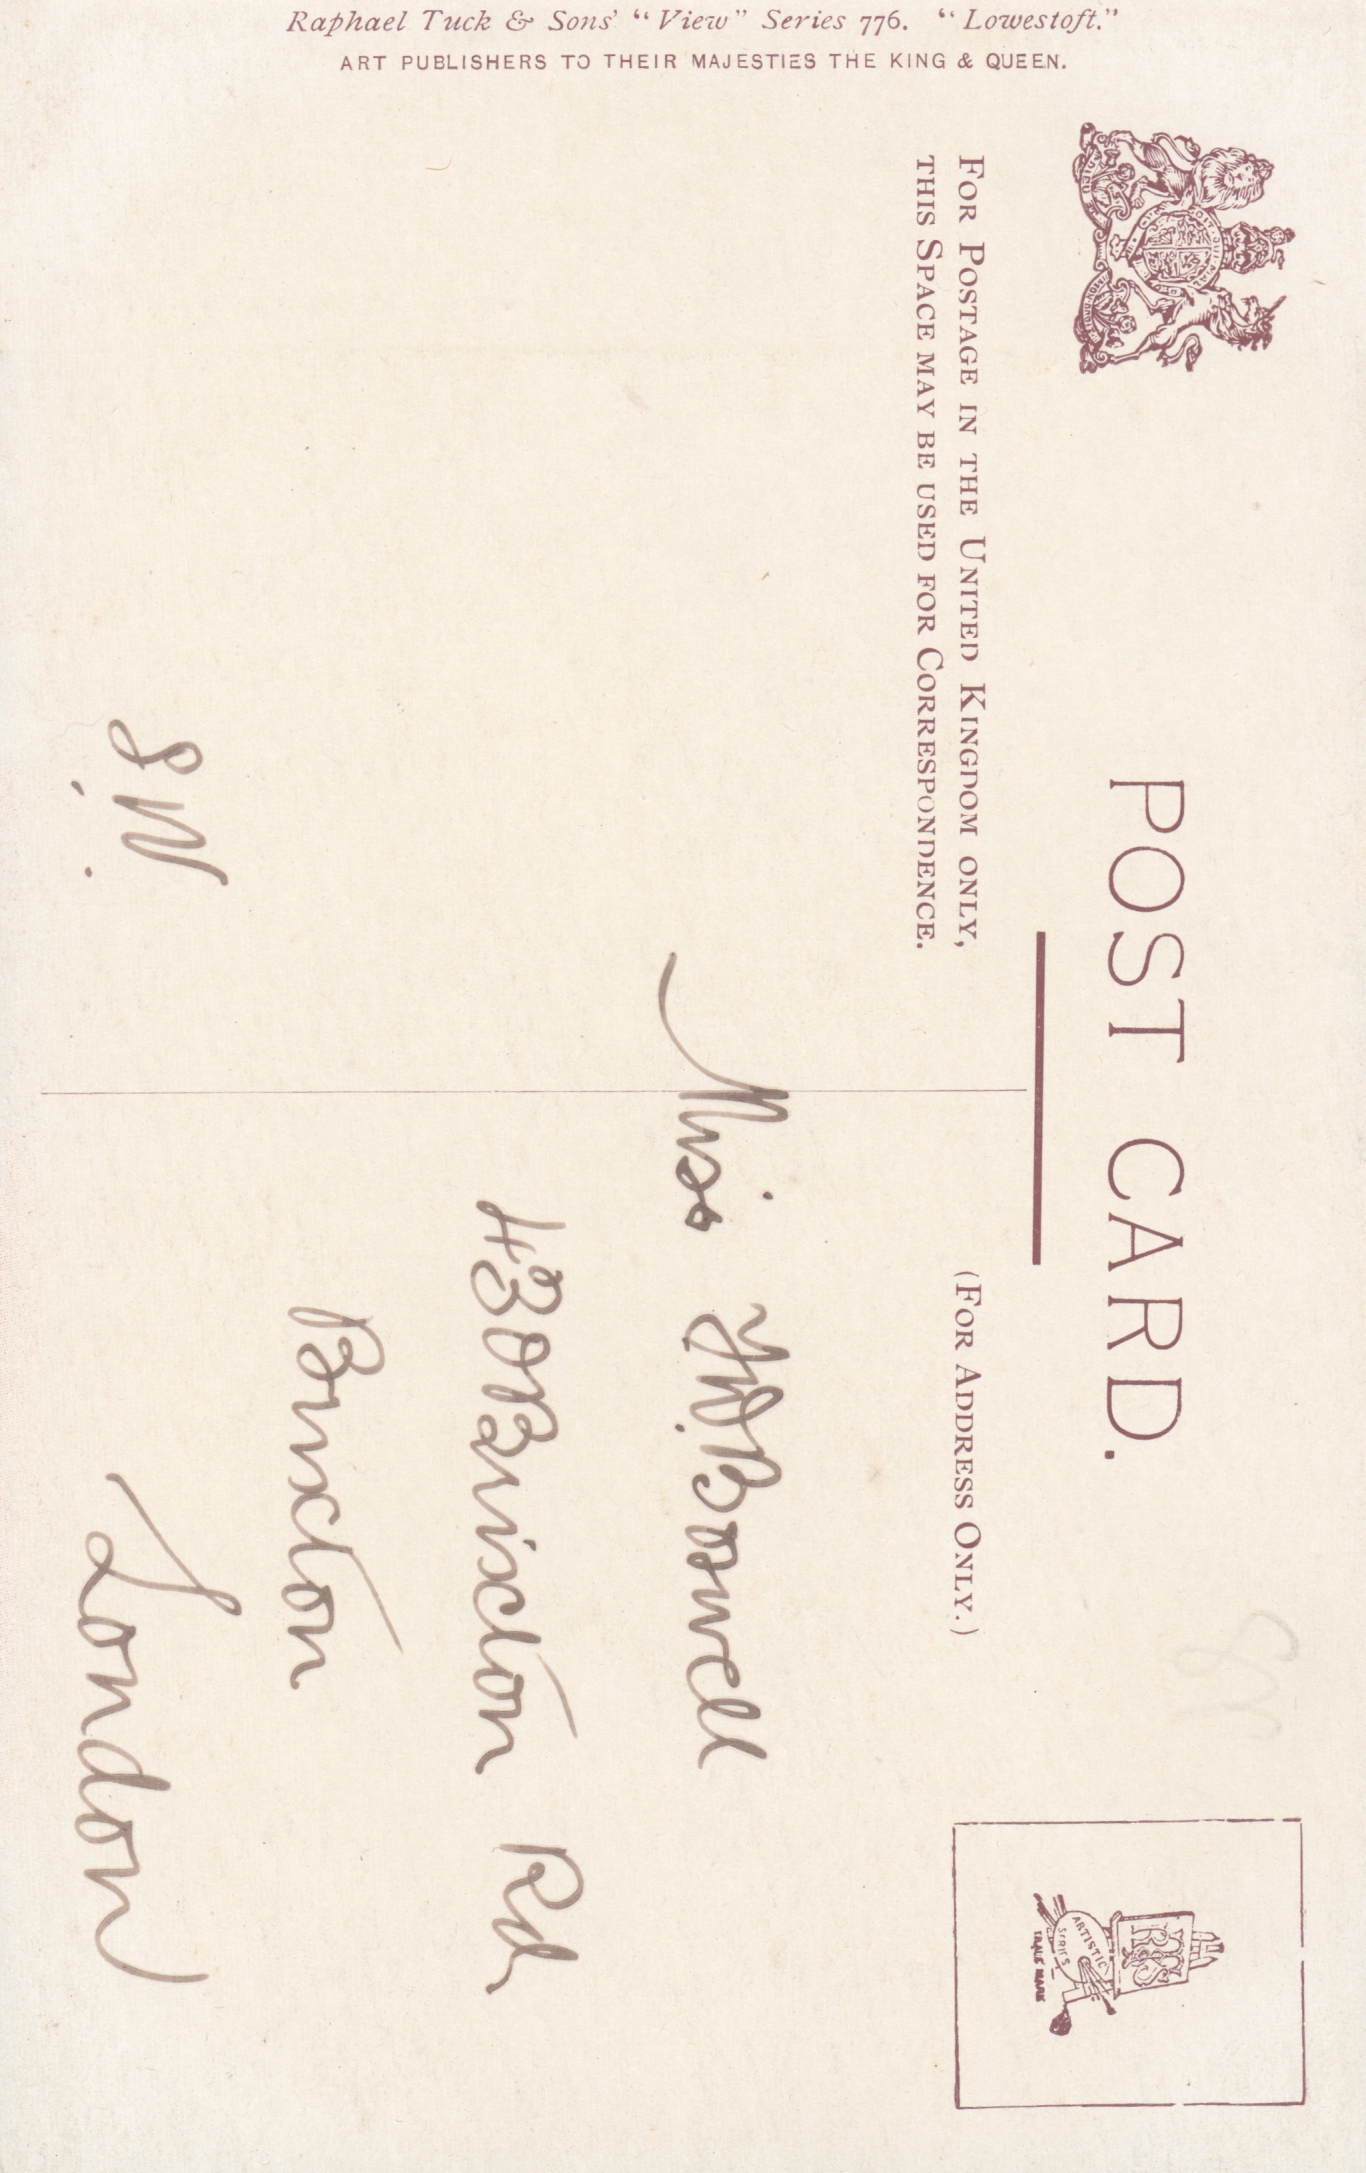 Raphael Tuck & Sons' "View" Series 776. "Lowestoft."
ART PUBLISHERS TO THEIR MAJESTIES THE KING & QUEEN.
POST CARD.
FOR POSTAGE IN THE UNITED KINGDOM ONLY,
THIS SPACE MAY BE USED FOR CORRESPONDENCE.
(FOR ADDRESS ONLY.)
ARTISTIC
SERIES
TRADE MARK
Miss Boswell
430 Brixton Rd
Brixton
London
S.W.